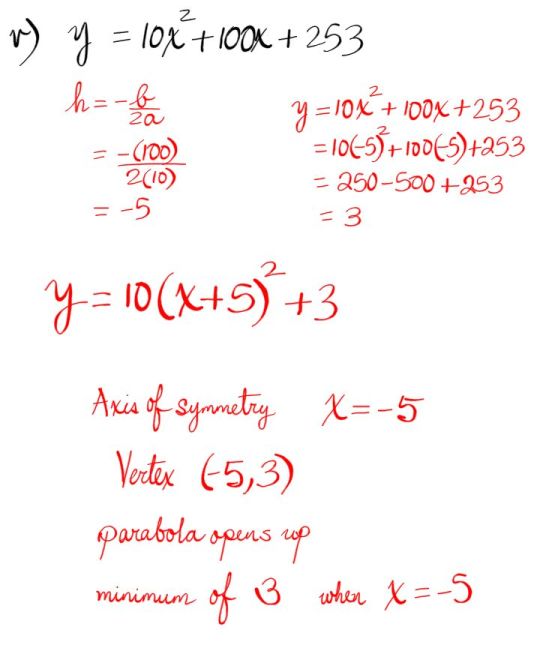 r) y = 10x² + 100x + 253
h = -b/2a
= -(100)/2(10)
= -5
y = 10x² + 100x + 253
= 10(-5)² + 100(-5) + 253
= 250 - 500 + 253
= 3
y = 10(x+5)² + 3
Axis of symmetry x = -5
Vertex (-5, 3)
parabola opens up
minimum of 3 when x = -5